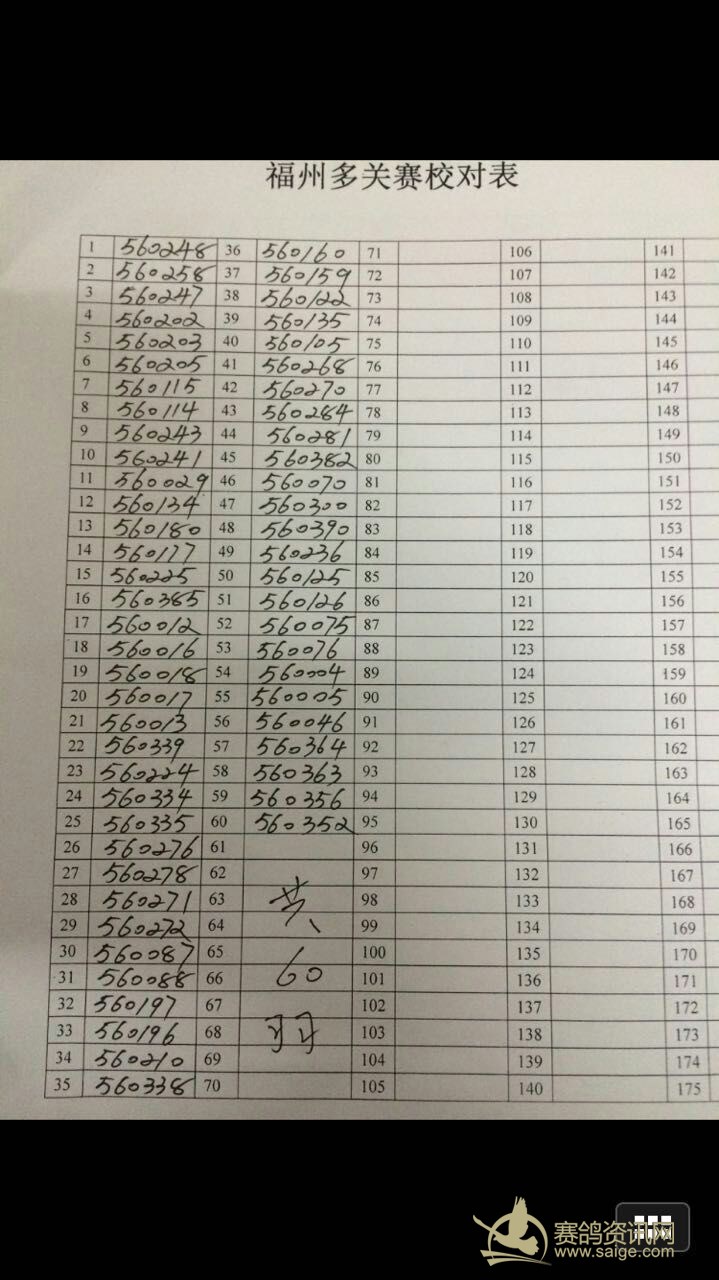 福州多关赛校对表
1 560248 36 560160 71 106 141
2 560258 37 560159 72 107 142
3 560247 38 560122 73 108 143
4 560202 39 560135 74 109 144
5 560203 40 560105 75 110 145
6 560205 41 560268 76 111 146
7 560115 42 560270 77 112 147
8 560114 43 560284 78 113 148
9 560243 44 560281 79 114 149
10 560241 45 560382 80 115 150
11 560029 46 560070 81 116 151
12 560134 47 560300 82 117 152
13 560180 48 560390 83 118 153
14 560177 49 560236 84 119 154
15 560225 50 560125 85 120 155
16 560385 51 560126 86 121 156
17 560012 52 560075 87 122 157
18 560016 53 560076 88 123 158
19 560018 54 560004 89 124 159
20 560017 55 560005 90 125 160
21 560013 56 560046 91 126 161
22 560339 57 560364 92 127 162
23 560224 58 560363 93 128 163
24 560334 59 560356 94 129 164
25 560335 60 560352 95 130 165
26 560276 61 96 131 166
27 560278 62 97 132 167
28 560271 63 共 98 133 168
29 560272 64 99 134 169
30 560087 65 100 135 170
31 560088 66 60 101 136 171
32 560197 67 102 137 172
33 560196 68 羽 103 138 173
34 560210 69 104 139 174
35 560338 70 105 140 175
赛鸽资讯网
www.saige.com